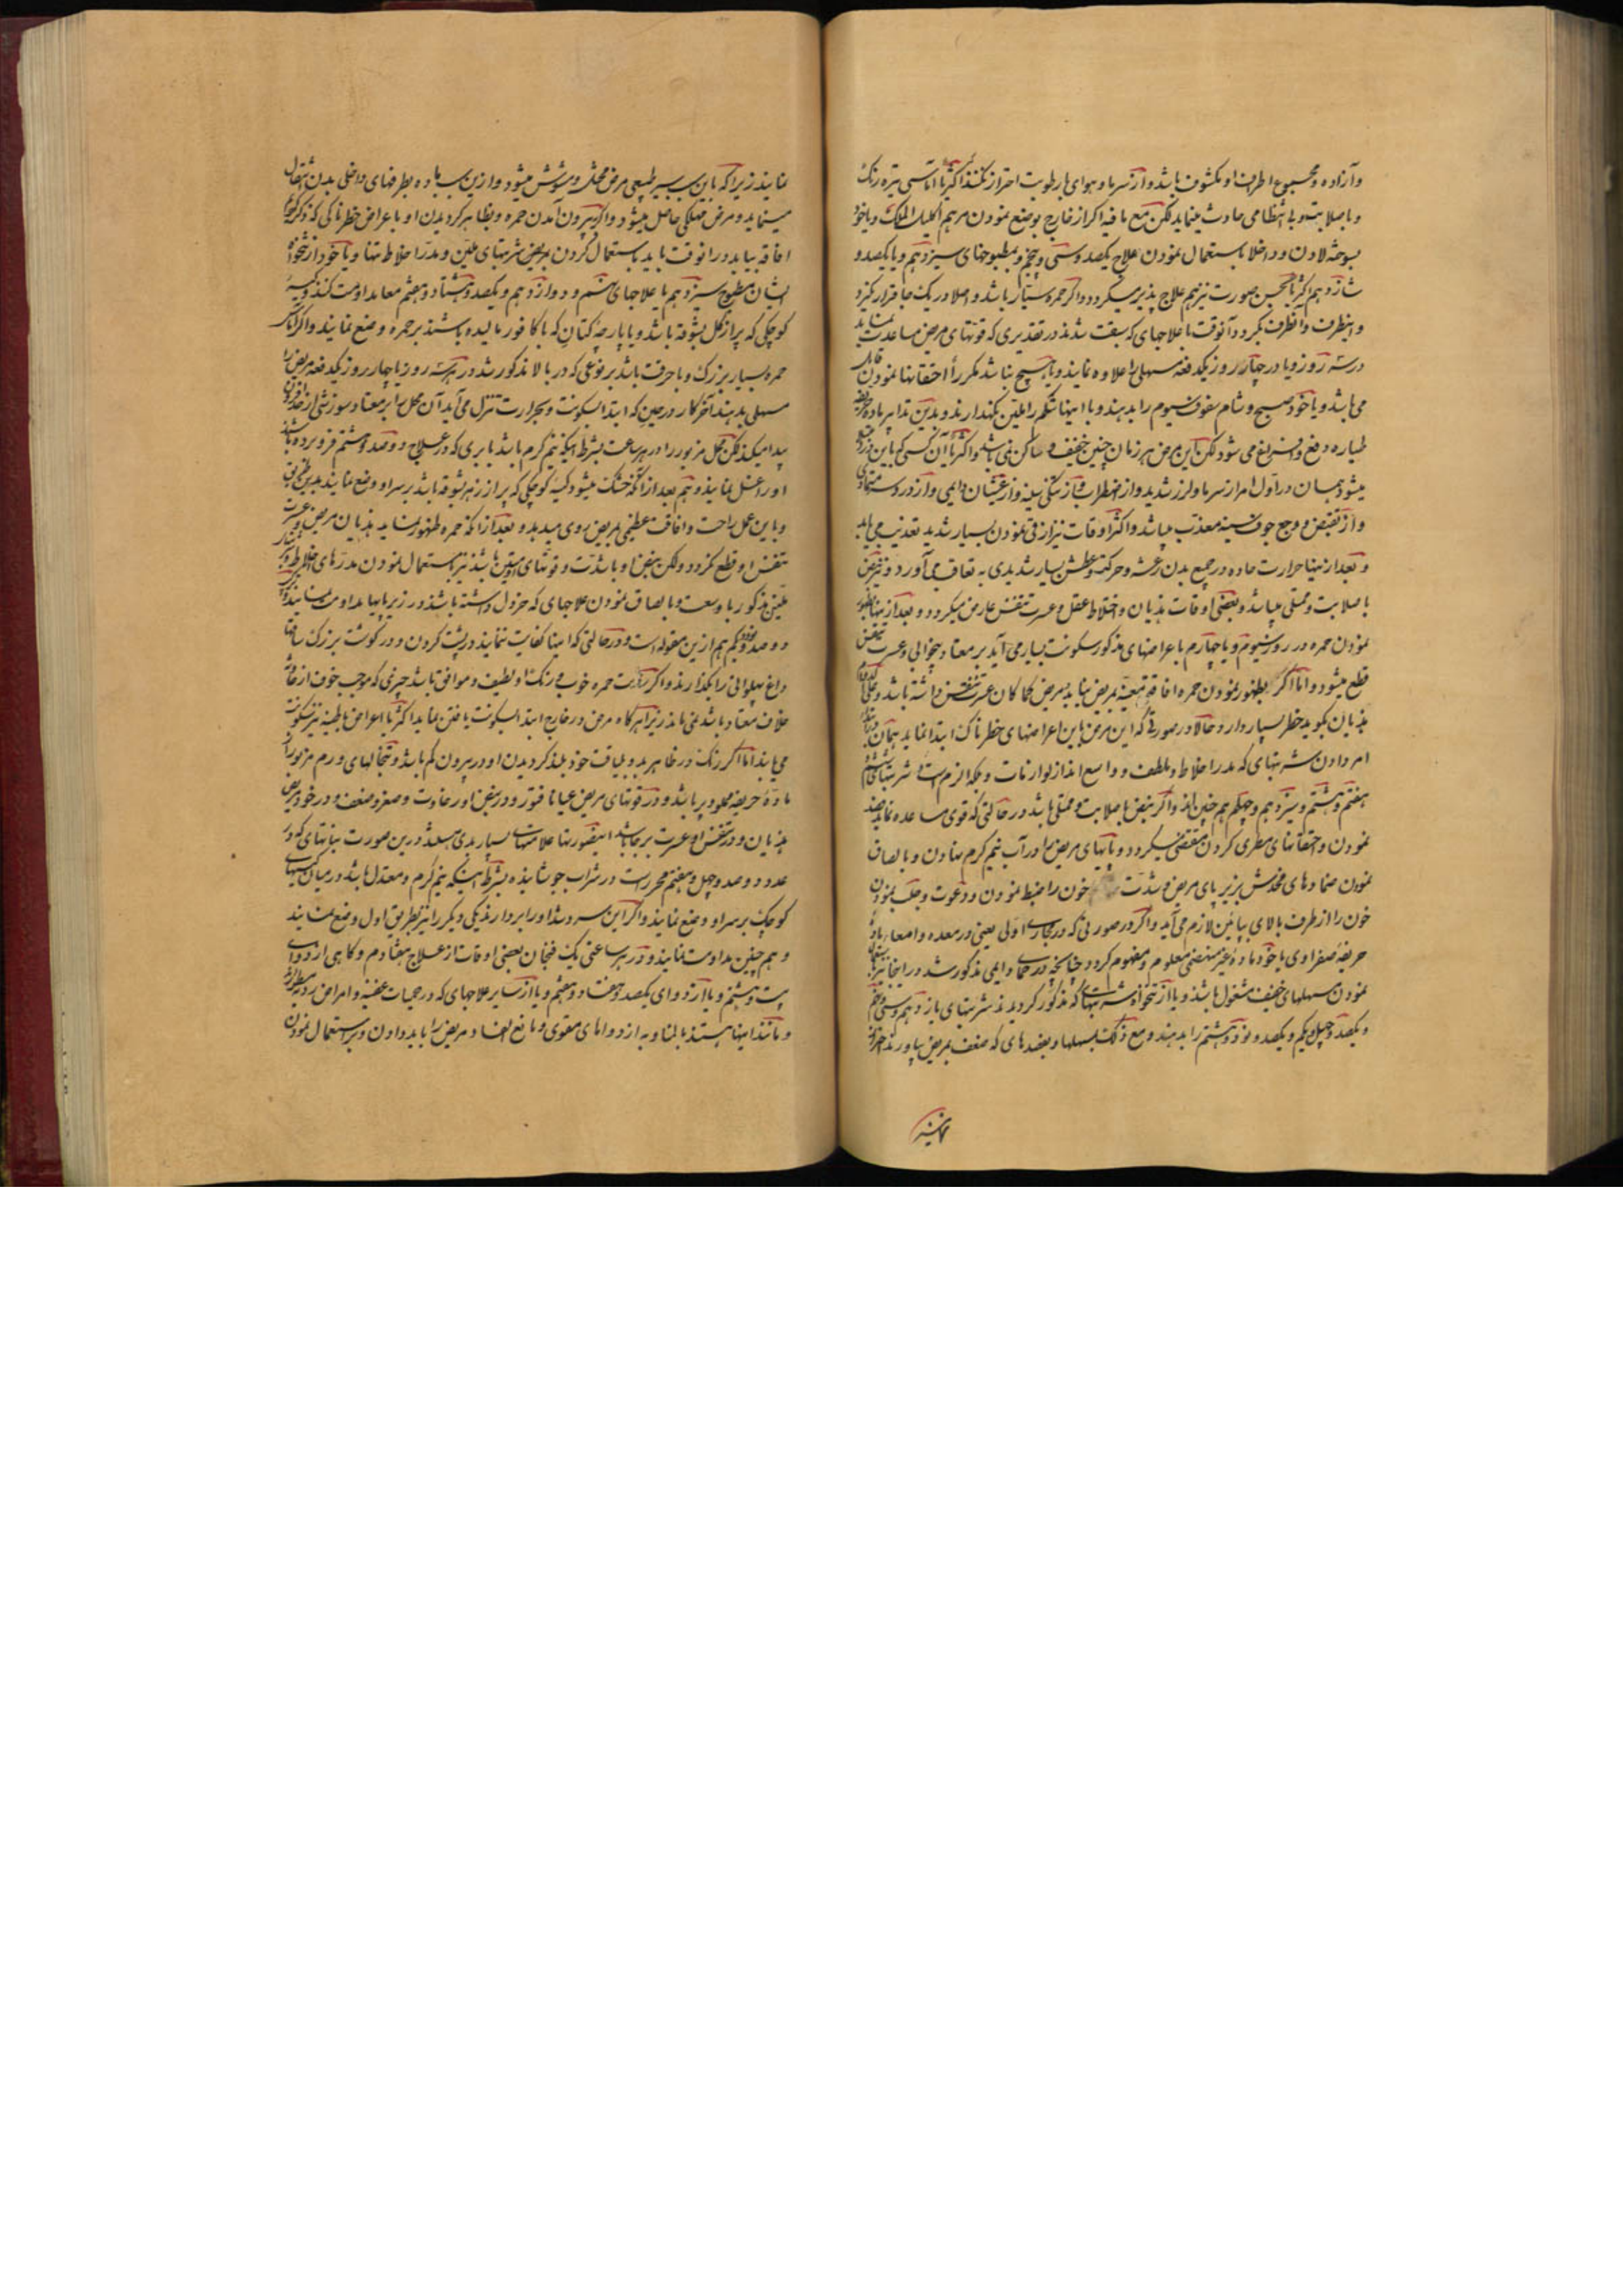 وآزاده و مجموع اطراف او مکشوف باشد و از سرما و هوای با رطوبت احتراز کنند اکثریا آماسی تیره رنک
و با صلابت و بی انتظامی حادث مینماید لکن مع ما فیه اکر از خارج بوضع نمودن مرهم اکلیل الملک و یا خود
بسوخته لادن و داخلا باستعمال نمودن علاج یکصد و سی و پنجم و بمطبوخهای سیزدهم و یا یکصد و
شانزدهم اکثریا بحسن صورت نیز هم علاج پذیر میکردد و اکر حمره سیار باشد و اصلا در یک جا قرار نکیرد
و اینطرف و آنطرف بکردد آنوقت با علاجهای که سبقت شدند در تقدیری که قوتهای مریض مساعدت نماید
در سه روز و یا در چهار روز یکدفعه مسهلی را علاوه نمایند و یا هیچ نباشد مکررا احتقانها نمودن قابل
می باشد و یا خود صبح و شام سفوف سیوم را بدهند و با اینها شکم را ملین نکهدارند و بدین تدابیر ماده حریفه
طیاره دفع و استفراغ می شود لکن این مرض هر زمان چنین خفیف و ساکن نمی باشد و اکثریا آن کسی که باین درد
میشود همان در اول امر از سرما و لرز شدید و از اضطراب و از تنکی سینه و از غثیان دایمی و از درد سر
و از تقبض و وجع جوف سینه معذب میباشد و اکثر اوقات نیز از قی نمودن بسیار شدید تعذیب می یابد
و بعد از اینها حرارت حاده در جمیع بدن رعشه و حرکت و عطش بسیار شدیدی به تعاقب می آورد و نبض
با صلابت و ممتلی میباشد و بعضی اوقات هذیان و اختلاط عقل و عسرت تنفس عارض میکردد و بعد از اینها بظهور
نمودن حمره در روز سیوم و یا چهارم با عرضهای مذکور سکونت بسیار می آید بر معتاد بیخوابی و عسرت تنفس
قطع میشود و اما اکر بظهور نمودن حمره افاقه بمریض نیاید و مریض کما کان عسرت تنفس داشته باشد و علی
هذیان بکوید خطر بسیار دارد و حالا در صورتی که این مرض باین اعراضهای خطرناک ابتدا نماید همان در ابتدای
امر دادن شربتهای که مدر اخلاط و ملطف و واسع اند از لوازمات و بلکه الزم است و شربتهای ششم
هفتم و هشتم و سیزدهم و چهلم هم چنین اند و اکر نبض با صلابت و ممتلی باشد در حالتی که قوی مساعده نماید فصد
نمودن و احتقانهای مطری کردن مقتضی میکردد و پایهای مریض را در آب نیم کرم نهادن و بالصاق
نمودن ضمادهای مخدش بزیر پای مریض و شدت خون را ضبط نمودن و دعوت و جلب نمودن
خون را از طرف بالای بپائین لازم می آید و اکر در صورتی که در مجاری اولی یعنی در معده و امعا ماده
حریفه صفراوی یا خود ماده غیر منهضمی معلوم و مفهوم کردد چنانچه در حمای دایمی مذکور شد در اینجا نیز
نمودن مسهلهای خفیف مشغول باشند و یا از نتخواه شربتهای که مذکور کردیدند شربتهای یازدهم و سی و پنجم
و یکصد و چهل و یکم و یکصد و نود و هشتم را بدهند و مع ذلک بمسهلها و بفصدهای که ضعف بمریض بیاورند احتراز
نمایند
نمایند زیرا که باین سبب سیر طبیعی مرض مختل و مشوش میشود و ازین سبب ماده بطرفهای داخلی بدن انتقال
مینماید و مرض مهلکی حاصل میشود و اکر بیرون آمدن حمره و بظاهر کردیدن او با عراض خطرناکی که ذکر
افاقه بیاید در آنوقت باید باستعمال کردن بمریض شربتهای ملین و مدر اخلاط تنها و یا خود از نتخواه
ایشان مطبوخ سیزدهم با علاجهای هشتم و دوازدهم و یکصد و هشتاد و هفتم معا مداومت کنند و کیسه
کوچکی که پر از کل بشوقه باشد و یا پارچه کتان که با کافور مالیده باشند بر حمره وضع نمایند و اکر آماس
حمره بسیار بزرک و با حرقت باشد بر نوعی که در بالا مذکور شد در هر سه روز یا چهار روز یکدفعه مریض را
مسهلی بدهند آخر کار در حین که ابتدا بسکونت و بحرارت تنزل می آید آن محل را بر معتاد سوزشی از
پیدا میکند لکن محل مزبور را در هر ساعت بشرط اینکه نیم کرم باشد بابری که در علاج دوصد و هشتم فرو برده باشند
او را غسل نمایند و هم بعد از آنکه خشک میشود کیسه کوچکی که پر از زهر بشوقه باشد بر سر او وضع نمایند بدین طریق
و باین عمل راحت و افاقت عظیمی بمریض روی میدهد و بعد از آنکه حمره ظهور نماید هذیان مریض و عسرت
تنفس او قطع نکردد ولکن نبض او با شدت و قوتهای او متین باشند نیز باستعمال نمودن مدرهای اخلاط و
ملین مذکور باوسعت و بالصاق نمودن علاجهای که خردل داشته باشد در زیر پایها مداومت نمایند
دوصد و یکم هم ازین مقوله است و در حالتی که اینها کفایت ننمایند در پشت کردن و در کوشت بزرک ساقها
داغ پهلوانی را بکذارند و اکر رؤیت حمره خوب و رنک او لطیف و موافق باشد چیزی که موجب خوف از
خلاف معتاد باشد نمی ماند زیرا هر کاه مرض در خارج ابتدا بسکونت یافتن نماید اکثریا اعراض باطنیه نیز سکونت
می یابند اما اکر رنک در ظاهر بد و بلیاقت خود بلند کردیدن او در بیرون کم باشد و نتخالهای ورم مزبور از
ماده حریفه مملو و پر باشد و در قوتهای مریض عیانا فتور و در نبض او رخاوت و صغر و ضعف و در خود مریض
هذیان و در تنفس او عسرت بر جا باشد اینقدرها علامتهای بسیار بدی هستند درین صورت نباتهای که در
عدد دوصد و چهل و هفتم محرر است در شراب جوشانیده بشرط اینکه نیم کرم و معتدل باشد در میان کیسهای
کوچک بر سر او وضع نمایند و اکر این سرد شد او را بردارند یکی دیکر را نیز بطریق اول وضع نمایند
و هم چنین مداومت نمایند و در هر ساعتی یک فنجان بعضی اوقات از علاج هفتادم و کاهی از دوای
بیست و هشتم و یا از دوای یکصد و هفتاد و هفتم و یا از سایر علاجهای که در حمیات عفنه و امراض ردیه
و مانند اینها هستند بالمناوبه از دواهای مقوی و مانع الفساد مریض را باید دادن و در استعمال نمودن